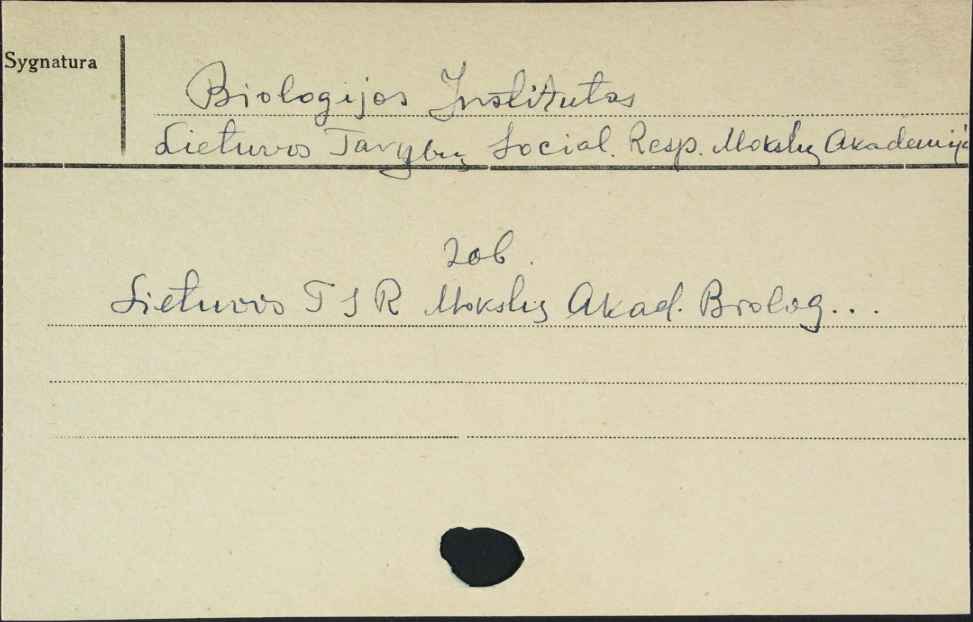 Sygnatura
Biologijos Institutas
Lietuvos Tarybų Social. Resp. Mokslų Akademija
zob.
Lietuvos TSR Mokslų Akad. Biolog...